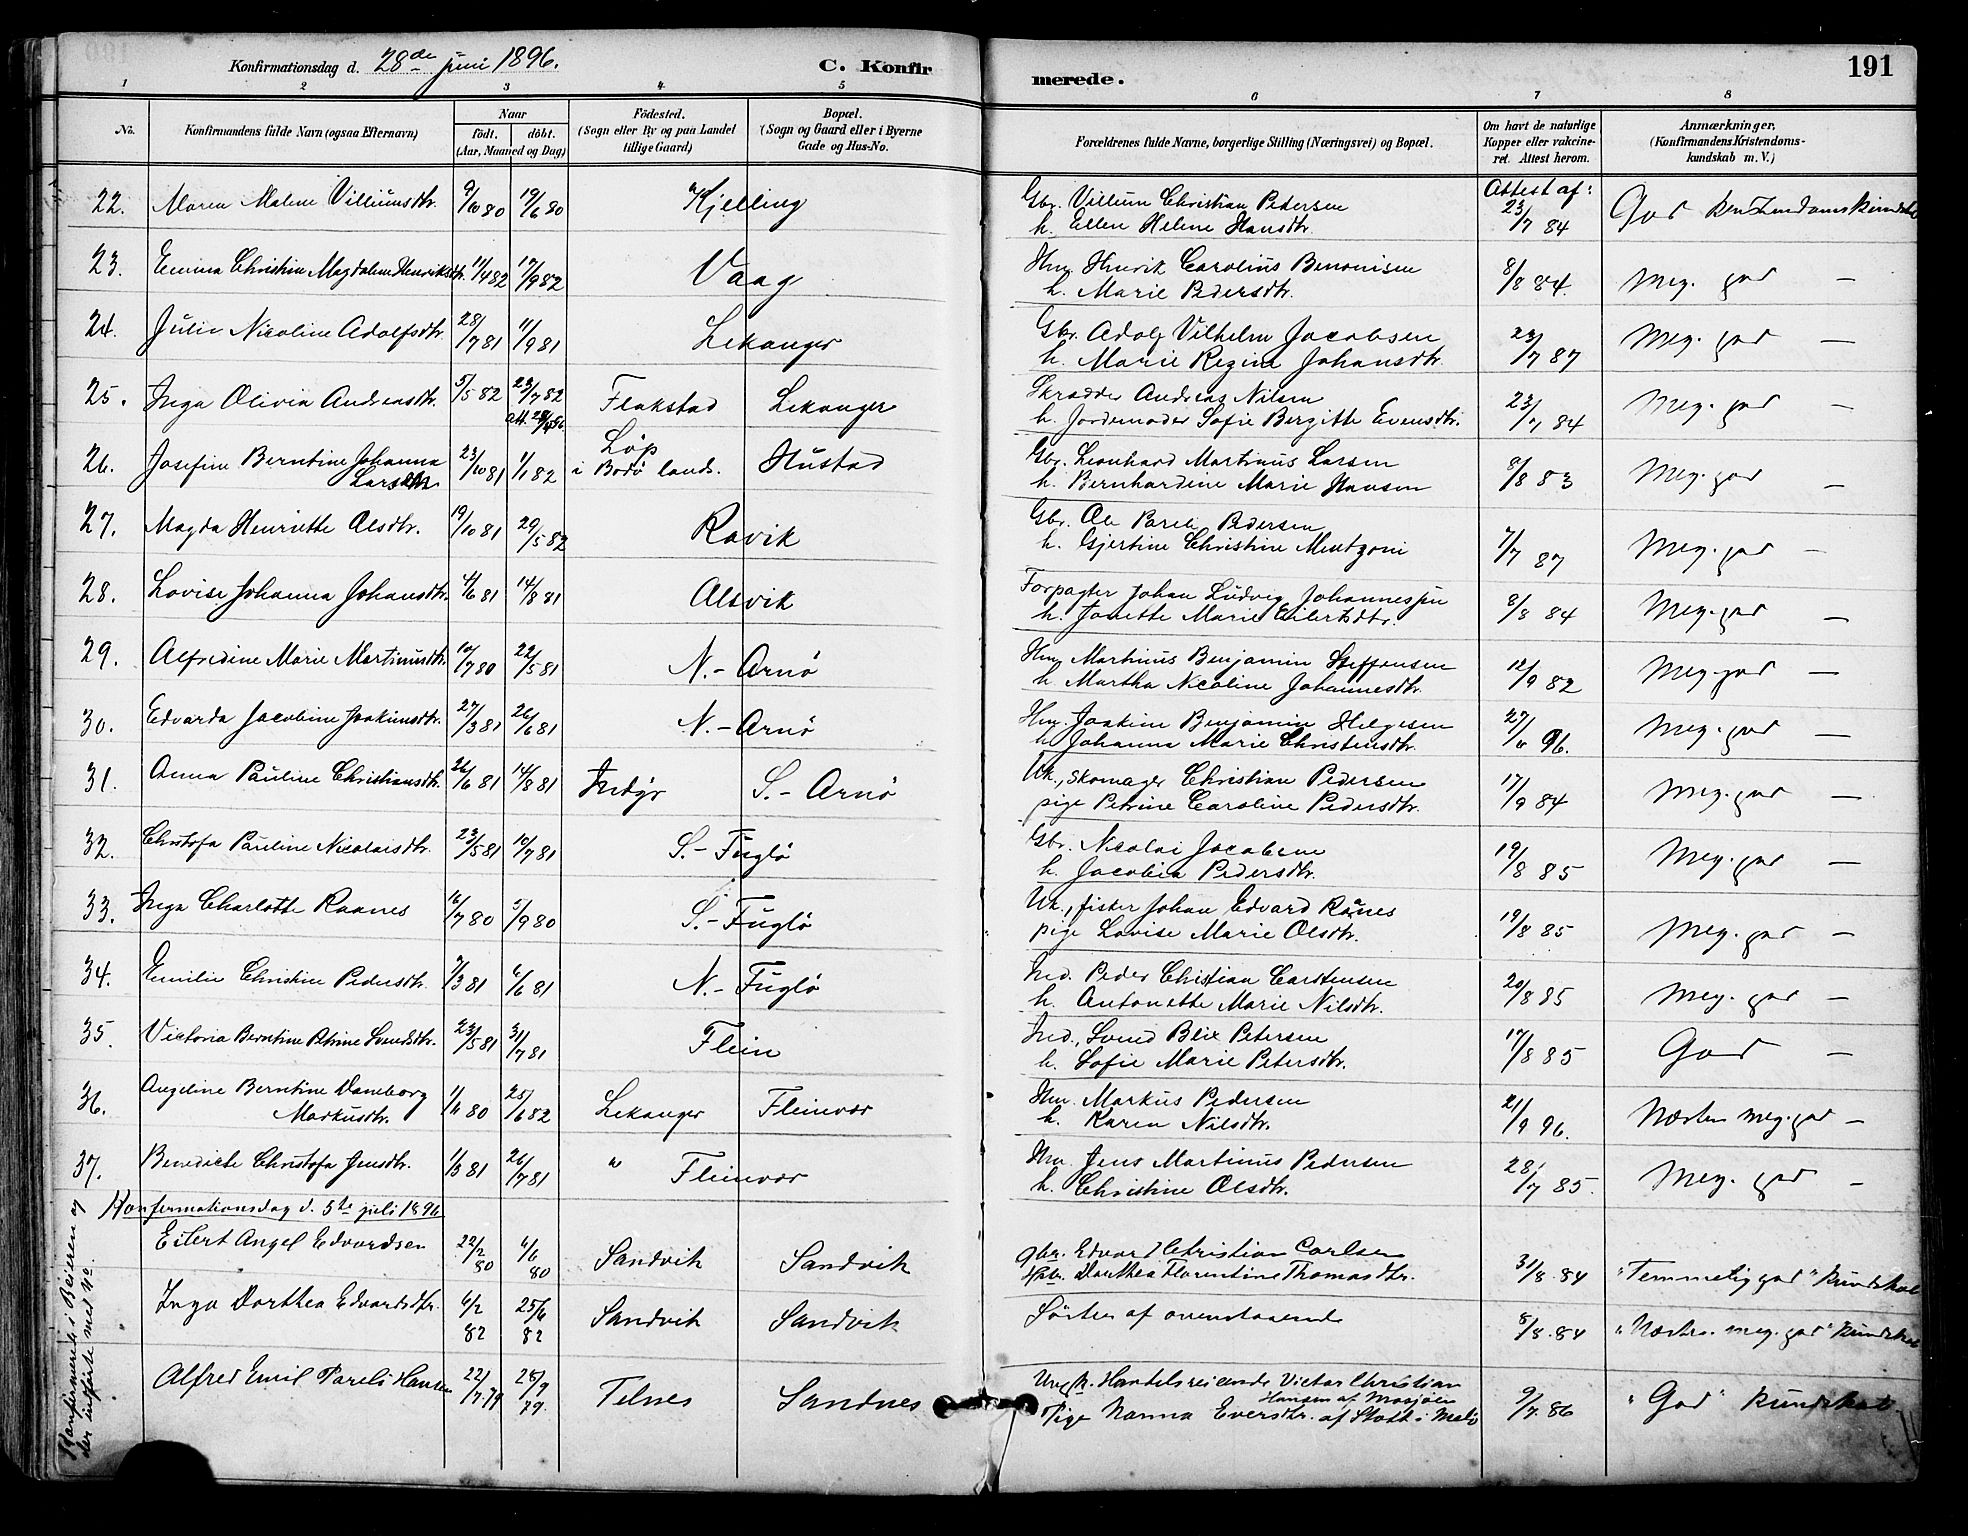 Konfirmationsdag d. 28de juni 1896. C. Konfirmerede. 191
1 2 3 4 5 6 7 8
No. Konfirmandens fulde Navn (ogsaa Efternavn) Naar födt. döbt. (Aar, Maaned og Dag) Födested. (Sogn eller By og paa Landet tillige Gaard) Bopæl. (Sogn og Gaard eller i Byerne Gade og Hus-No. Forældrenes fulde Navne, borgerlige Stilling (Næringsvei) og Bopæl. Om havt de naturlige Kopper eller vakcineret. Attest herom. Anmærkninger. (Konfirmandens Kristendomskundskab m. V.)
Attest af:
22. Maren Malene Villumsdtr. 9/10 80 19/6 80 Kjelling Gbr. Villum Christian Pedersen
h. Ellen Helene Hansdtr. 23/7 84 God kristendomskundskab
23. Emma Christine Magdalene Henriksdtr. 11/4 82 17/9 82 Vaag Hm. Henrik Carolius Benonisen
h. Marie Pedersdtr. 8/8 84. Meg. god —
24. Julie Nicoline Adolfsdtr. 28/7 81 11/9 81 Lekanger Gbr. Adolf Vilhelm Jacobsen
h. Marie Regine Johansdtr. 23/7 87 Meg. god —
25. Inga Olivia Andreasdtr. 5/5 82 23/7 82 Flakstad Lekanger Skrædder Andreas Nilsen
h. Jordemoder Sofie Bergitte Evensdtr. 23/7 84 Meg. god —
26. Josefine Berntine Johanna
Larsen 23/10 81 1/1 82 Løp
i Bodø lands. Hustad Gbr. Leonhard Martinus Larsen
h. Bernhardine Marie Hansen 8/8 83 Meg. god —
27. Magda Henriette Olsdtr. 19/10 81 29/5 82 Ravik Gbr. Ole Pareli Pedersen
h. Gjertine Christine Mentzoni 7/7 87 Meg. god —
28. Lovise Johanna Johansdtr. 4/6 81 14/8 81 Alsvik Forpagter Johan Ludvig Johannessen
h. Janette Marie Eilertsdtr. 8/8 84 Meg. god —
29. Alfredine Marie Martinusdtr. 10/7 80 22/5 81 N.- Arnö Hm. Martinus Benjamin Steffensen
h. Martha Nicoline Johannesdtr. 12/9 82 Meg. god —
30. Edvarda Jacobine Joakimsdtr. 27/3 81 26/6 81 N.- Arnö Hm. Joakim Benjamin Helgesen
h. Johanna Marie Christensdtr. 27/6 96. Meg. god —
31. Anna Pauline Christiansdtr. 26/6 81 14/8 81 Indyr S.- Arnö Uk., skomager Christian Pedersen
pige Petrine Caroline Pedersdtr. 17/9 84 Meg. god —
32. Christofa Pauline Nicolaisdtr. 23/5 81 10/7 81 S.- Fuglö Gbr. Nicolai Jacobsen
h. Jacobia Pedersdtr. 19/8 85 Meg. god —
33. Inga Charlotte Raanes 16/7 80 5/9 80 S.- Fuglö Uk., fisker Johan Edvard Raanes
pige Lovise Marie Olsdtr. 19/8 85 Meg. god —
34. Emilie Christine Pedersdtr. 7/3 81 6/6 81 N.- Fuglö Ind. Peder Christian Carstensen
h. Antonette Marie Nilsdtr. 20/8 85 Meg. god —
35. Victoria Berntine Petrine Svendsdtr. 23/5 81 31/7 81 Flein Ind., Svend Blix Petersen
h. Sofie Marie Petersdtr. 17/8 85 God —
36. Angeline Berntine Daneborg
Markusdtr. 1/11 80 25/6 82 Lekanger Fleinvær Hm. Markus Pedersen
h. Karen Nilsdtr. 21/9 96. Næsten meg. god —
37. Benedicte Christofa Jensdtr. 1/3 81 26/7 81 " Fleinvær Hm. Jens Martinus Pedersen
h. Christine Olsdtr. 28/7 85. Meg. god —
Konfirmationsdag d. 5te juli 1896
Eilert Angel Edvardsen 22/2 80 6/6 80 Sandvik Sandvik Gbr. Edvard Christian Carlsen
Dorthea Florentine Thomasdtr. 31/8. 84 "Temmelig god" kundskab
Inga Dorthea Edvardsdtr. 6/2 82 25/6 82 Sandvik Sandvik Söster af ovenstaaende 8/8. 84 "Næsten meg. god" kundskab
Alfred Emil Pareli Hansen 22/7 79 28/9 79. Telnes Sandnes Ungk. Handelsreisende Victor Christian
Hansen af Mosjøen
Pige Nanna Eversdtr. af Stott i Melö 9/7. 86 "God" kundskab
Konfirmerede i Beieren og
der indförte med No.